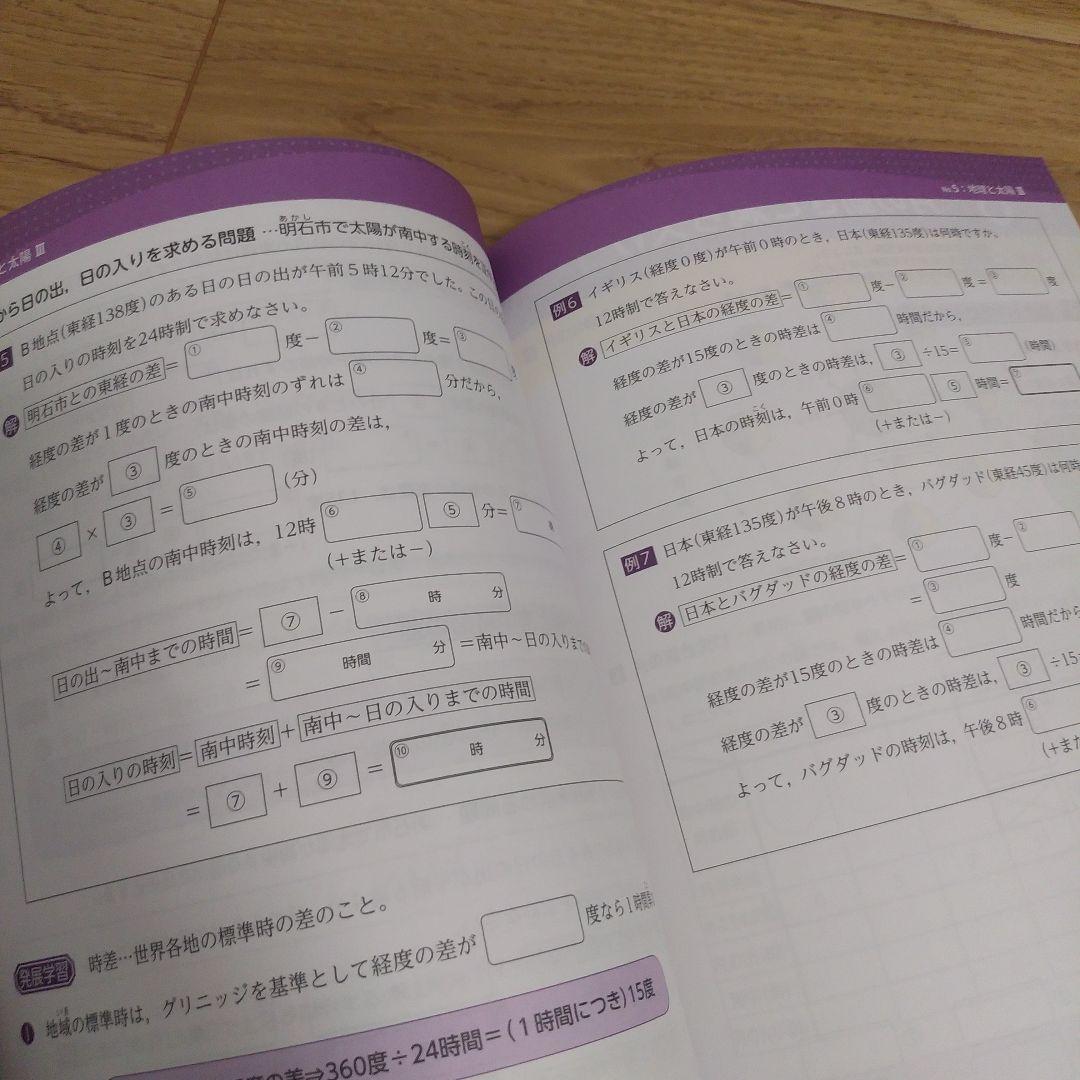 と太陽 Ⅲ
から日の出，日の入りを求める問題 …明石市で太陽が南中する時刻を
あかし
5 B地点(東経138度)のある日の日の出が午前5時12分でした。この
日の入りの時刻を24時制で求めなさい。
解 明石市との東経の差＝① 度－② 度＝③
経度の差が1度のときの南中時刻のずれは④ 分だから，
経度の差が③度のときの南中時刻の差は，
④×③＝⑤ (分)
よって，B地点の南中時刻は，12時⑥ ⑤分＝⑦
(＋または－)
日の出～南中までの時間＝⑦－⑧ 時 分
＝⑨ 時間 分＝南中～日の入りまでの
日の入りの時刻＝南中時刻＋南中～日の入りまでの時間
＝⑦＋⑨＝⑩ 時 分
発展学習 時差…世界各地の標準時の差のこと。
❶ 地域の標準時は，グリニッジを基準として経度の差が 度なら1時間
の差⇒360度÷24時間＝(1時間につき)15度
No.5：地球と太陽 Ⅲ
例6 イギリス(経度0度)が午前0時のとき，日本(東経135度)は何時ですか。
12時制で答えなさい。
解 イギリスと日本の経度の差＝① 度－② 度＝③ 度
経度の差が15度のときの時差は④ 時間だから，
経度の差が③度のときの時差は，③÷15＝⑤ (時間)
よって，日本の時刻は，午前0時⑥ ⑤時間＝⑦
こく
(＋または－)
例7 日本(東経135度)が午後8時のとき，バグダッド(東経45度)は何時
12時制で答えなさい。
解 日本とバグダッドの経度の差＝① 度－②
＝③ 度
経度の差が15度のときの時差は④ 時間だから
経度の差が③度のときの時差は，③÷15
よって，バグダッドの時刻は，午後8時⑥
(＋また